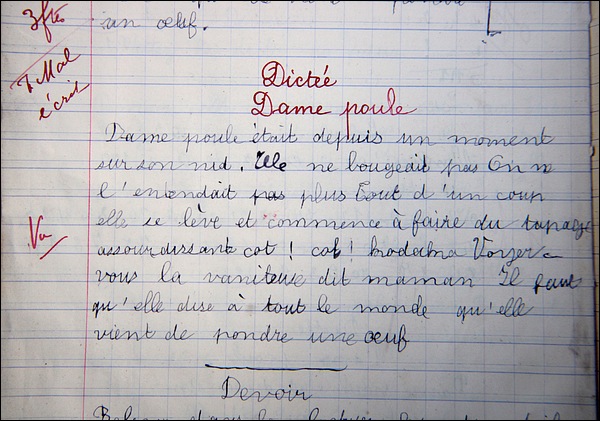 3 ftes
un oelf.
T. Mal
écrit
Dictée
Dame poule
Dame poule était depuis un moment
sur son nid. Elle ne bougeait pas On n
l'entendait pas plus Tout d'un coup
elle se lève et commence à faire du tapage
Vu
assourdissant cot ! cot ! kodaka Voyez-
vous la vaniteuse dit maman Il faut
qu'elle dise à tout le monde qu'elle
vient de pondre une oeuf
Devoir